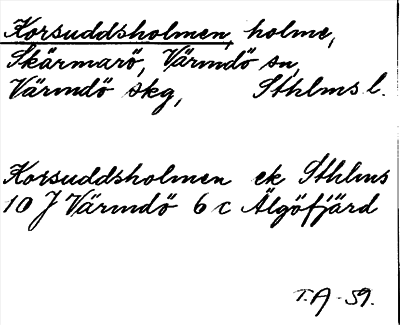 Korsuddsholmen, holme,
Skärmarö, Värmdö sn,
Värmdö skg, Sthlms l.
Korsuddsholmen ek Sthlms
10 J Värmdö 6 c Älgöfjärd
T.A. 59.